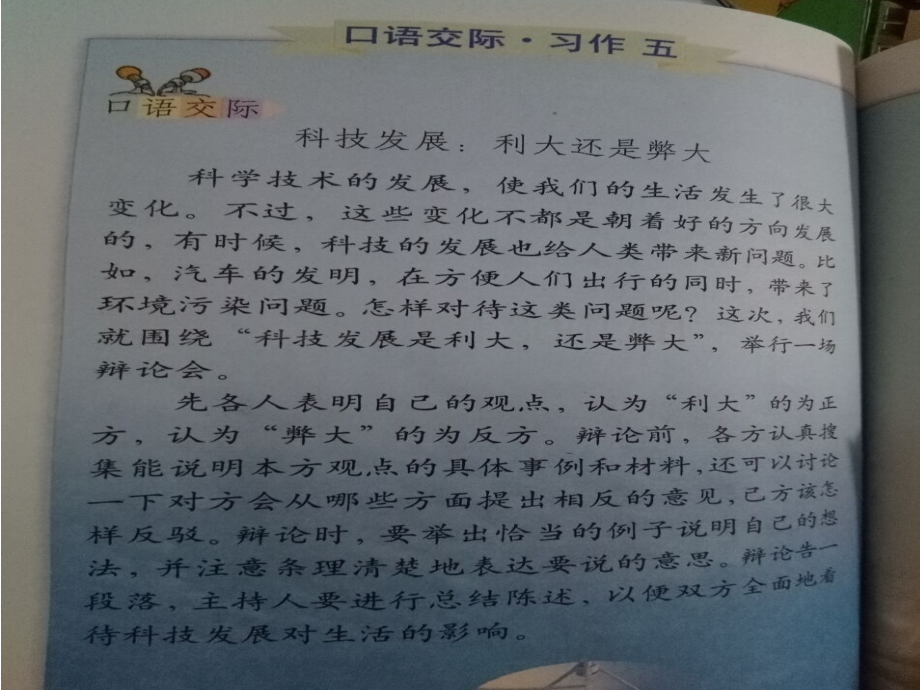 口语交际·习作 五
口语交际
科技发展：利大还是弊大
科学技术的发展，使我们的生活发生了很大
变化。不过，这些变化不都是朝着好的方向发展
的，有时候，科技的发展也给人类带来新问题。比
如，汽车的发明，在方便人们出行的同时，带来了
环境污染问题。怎样对待这类问题呢？这次，我们
就围绕“科技发展是利大，还是弊大”，举行一场
辩论会。
先各人表明自己的观点，认为“利大”的为正
方，认为“弊大”的为反方。辩论前，各方认真搜
集能说明本方观点的具体事例和材料，还可以讨论
一下对方会从哪些方面提出相反的意见，己方该怎
样反驳。辩论时，要举出恰当的例子说明自己的想
法，并注意条理清楚地表达要说的意思。辩论告一
段落，主持人要进行总结陈述，以便双方全面地看
待科技发展对生活的影响。